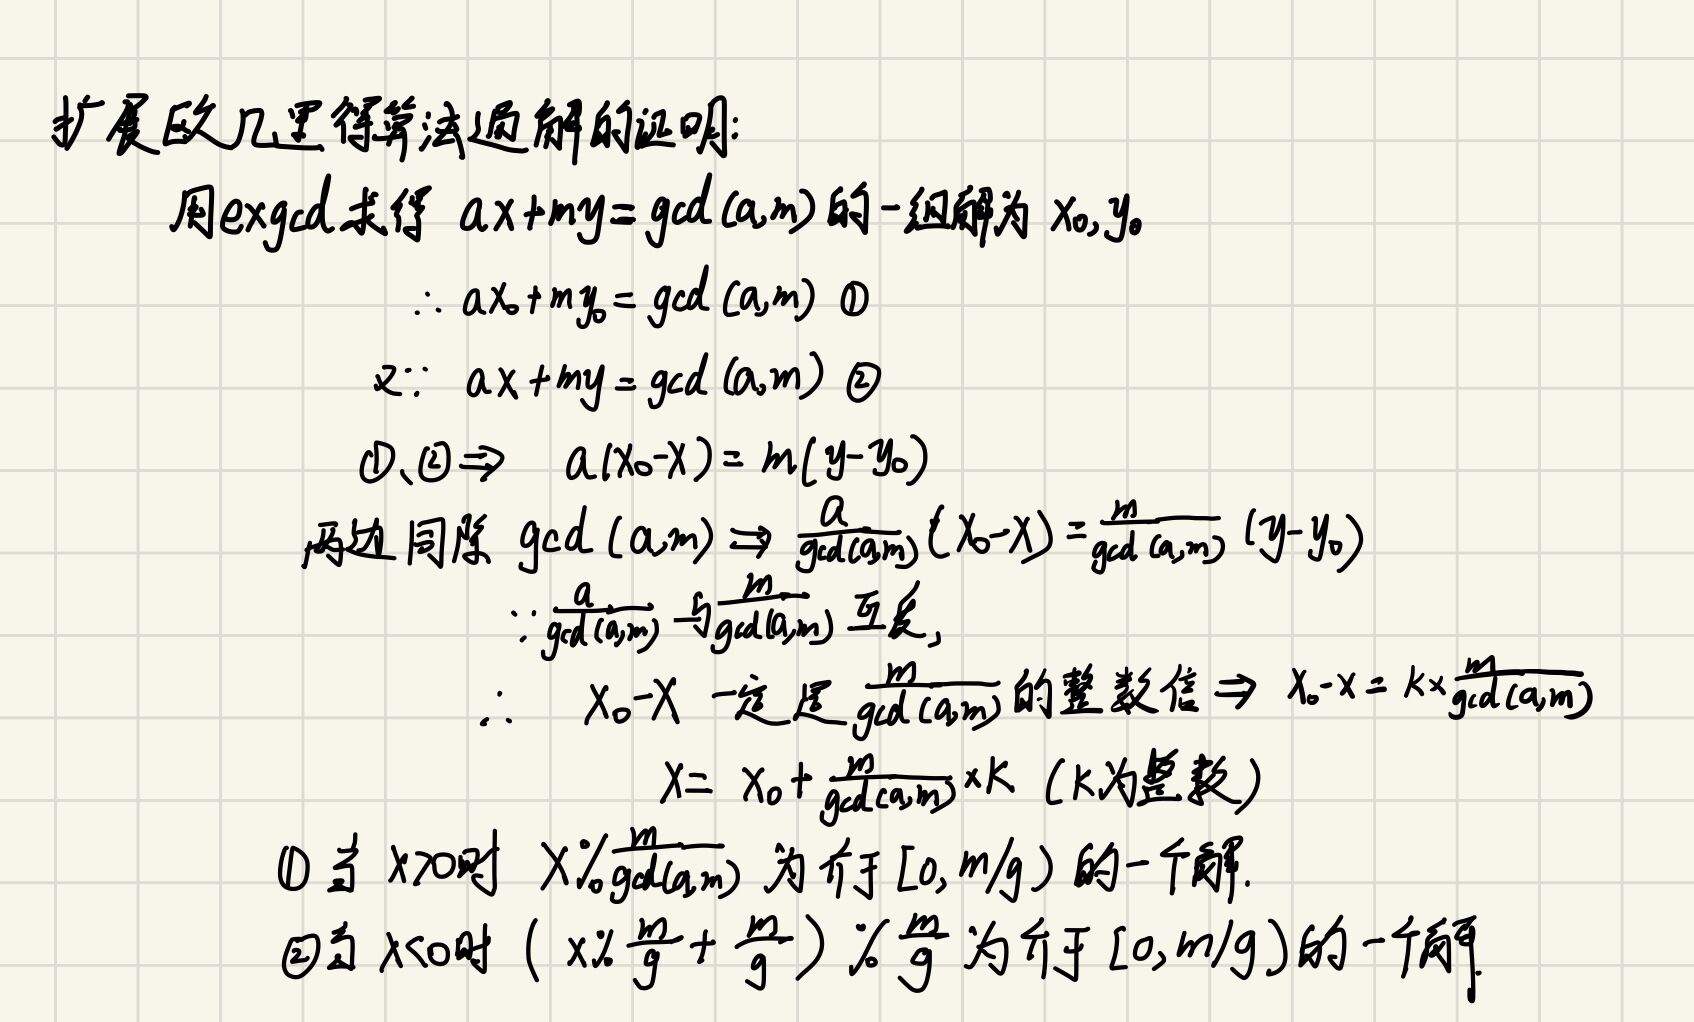 扩展欧几里得算法通解的证明:
用exgcd求得 ax+my=gcd(a,m)的一组解为 x₀,y₀
∴ ax₀+my₀=gcd(a,m) ①
又∵ ax+my=gcd(a,m) ②
①、②⇒ a(x₀-x)=m(y-y₀)
两边同除 gcd(a,m) ⇒ a/gcd(a,m) (x₀-x)=m/gcd(a,m) (y-y₀)
∵ a/gcd(a,m) 与 m/gcd(a,m) 互质,
∴ x₀-x 一定是 m/gcd(a,m) 的整数倍 ⇒ x₀-x=k×m/gcd(a,m)
x= x₀+m/gcd(a,m)×k (k为整数)
①当 x>0时 x%m/gcd(a,m) 为介于[0,m/g)的一个解.
②当 x<0时 (x%m/g+m/g)%m/g 为介于[0,m/g)的一个解.